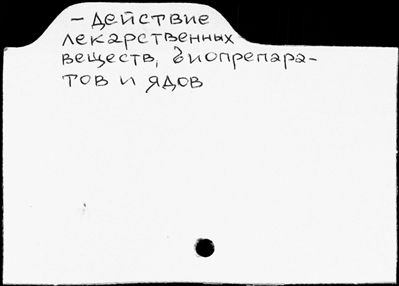 – Действие
лекарственных
веществ, биопрепара-
тов и ядов